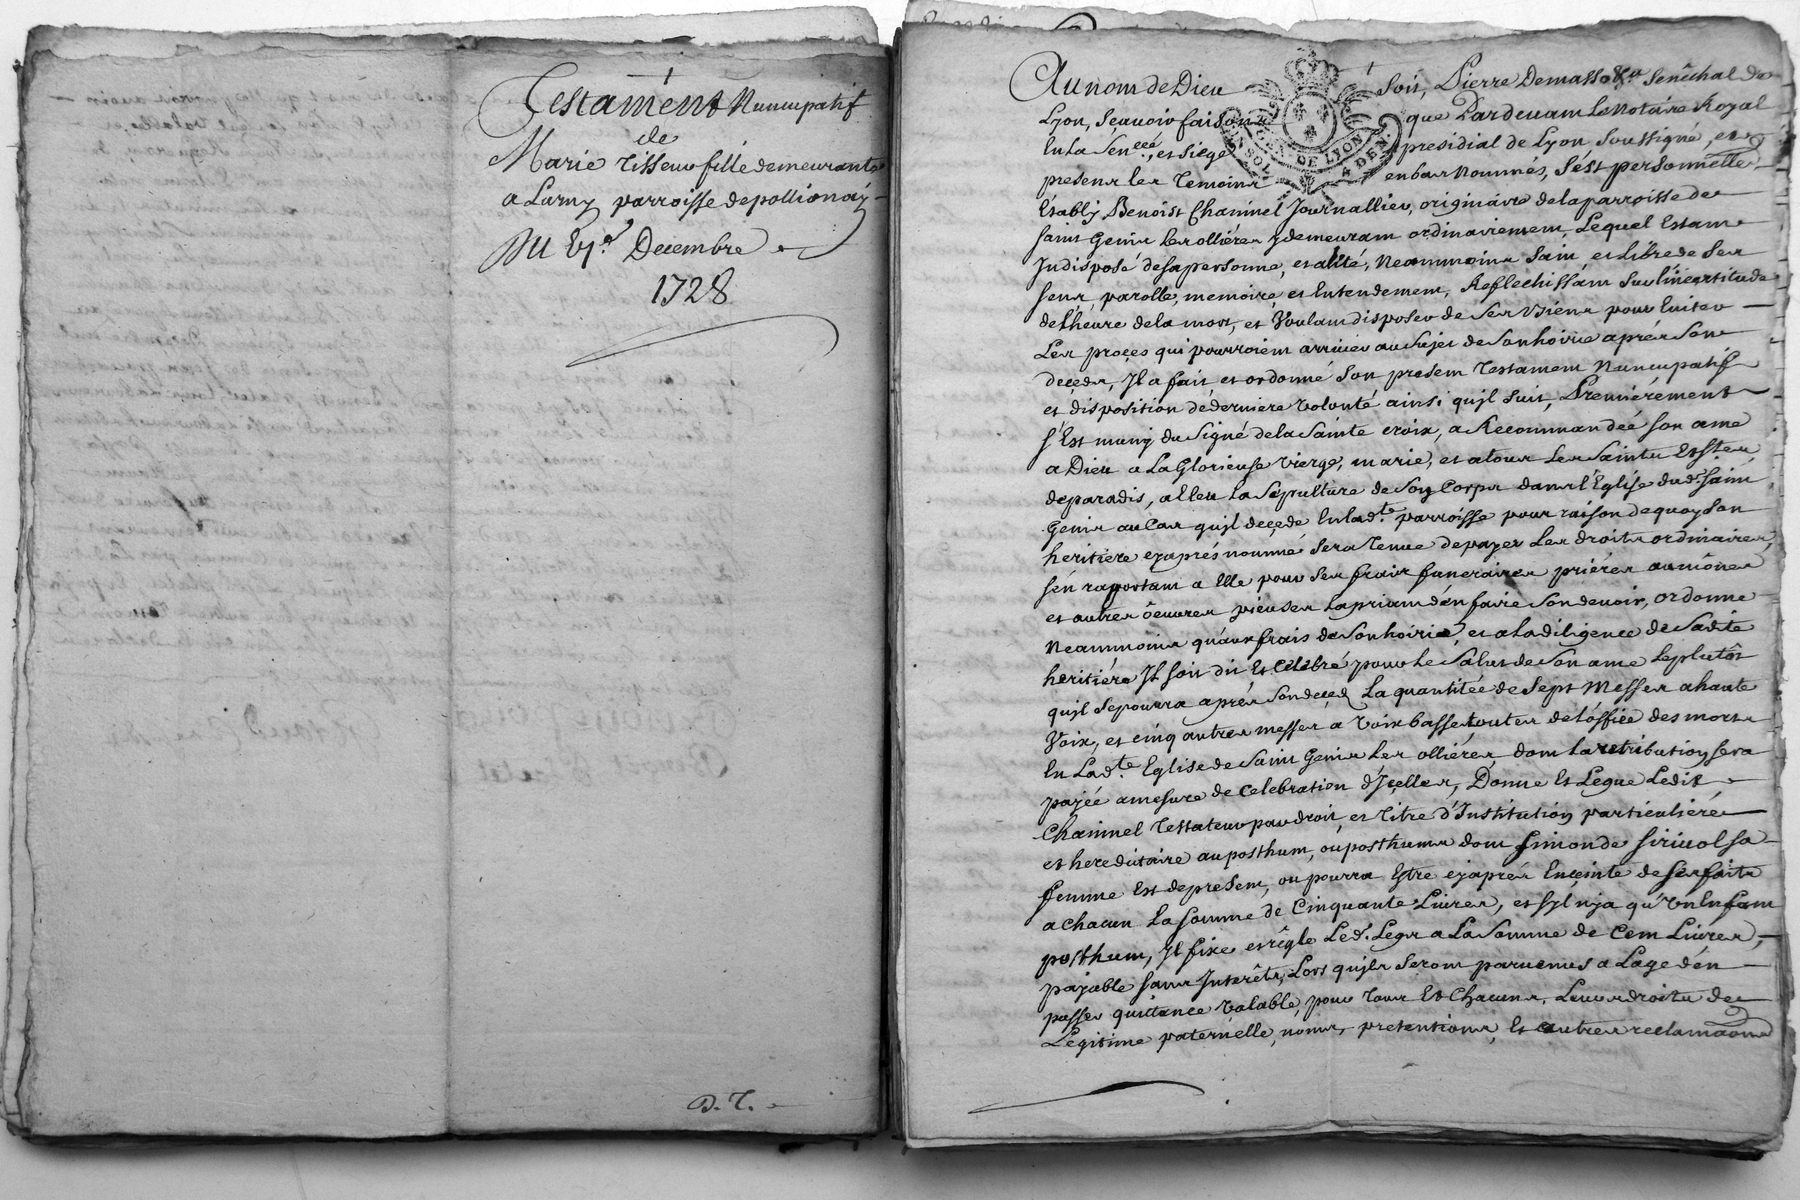 Testament Nuncupatif
de
Marie Tisseur fille demeurante
a Larny parroisse depollionay
Du Decembre
1728
D. T.
Au nom de Dieu Soit, Pierre Demasso &a Senêchal de
Lyon, Scauoir faisons que Pardeuant Le Notaire Royal
En La Sen.ceé, et Siege presidial de Lyon Soussigné, et
GEN. DE LYON
presens les Temoins enbas Nommés, S'est personnelle.
Establÿ Benoist Chaninel Journallier, originaire delaparroisse de
Saint Genis Les ollières ÿ demeurant ordinairement, Lequel Estant
Indisposé desapersonne, et alité, Neantmoins Sain et Libre de Ses
Sens, parolle, memoire, et Entendement, Reflechissant Sur Lincertitude
de Lheure dela mort, et Voulant disposer de Ses Biens pour Euiter
Les proçes qui pourroient arriuer au Sujet de Son hoirie aprés Son
deçeds, Il a fait et ordonné Son present Testament Nuncupatif
et disposition de derniere Volonté ainsi quil Suit, Premiérement
s'Est munÿ du Signe dela Sainte Croix, a Recommandée son ame
a Dieu a La Glorieuse Vierge, marie, et atous Les Saints Et Stes
deparadis, a Eleu La Sépulture de Son Corps dans l'Eglise dud. Saint
Genis au Cas quil deçede Enlad.te parroisse pour raison dequoy Son
heritiere cÿaprés nommé Sera Tenue depayer Les droits ordinaires,
s'en raportant a Elle pour Ses frais funeraires priéres aumônes
et autres oeuures pieuses Lapriant d'en faire Son deuoir, ordonne
Neantmoins qu'aux frais de Son hoirie, et a La diligence de Sadite
heritiére Il soit dit Et Celebré pour Le Salut de Son ame Leplutôt
quil Sepourra aprés Son deçed La quantitée de Sept Messes a haute
Voix, et cinq autres messes a Voix basse toutes de L'office des morts
En Lad.te Eglise de Saint Genis Les ollières, dont La retribution sera
païée a mesure de Celebration d'Içelles, Donne Et Legue Ledit
Chaninel Testateur par droit, et Titre d'Institution particuliére
et hereditaire auposthum, ou posthumes dont Simonde siriuol sa
femme Est depresent, ou pourra Estre cÿaprés Enceinte de Ses faits
a chacun La somme de Cinquante Liures, et s'il nÿa qu'Un Enfant
posthum, Il fixe et régle Led. Legs a La Somme de Cent Liures,
païable sans Interêts, Lors quils Seront paruenus a Lage d'en
passer quittance Valable, pour Tous Et Chacuns, Leurs droits de
Légitime paternelle, noms, pretentions, Et autres reclamaons